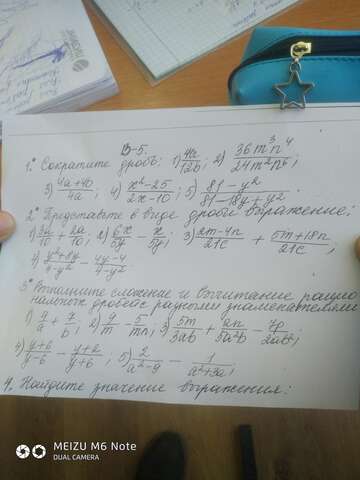 В-5.
1.° Сократите дробь: 1) 4a/12b; 2) 36m³n⁴/24m²n⁶;
3) 4a+40/4a; 4) x²-25/2x-10; 5) 81-y²/81-18y+y².
2.° Представьте в виде дроби выражение:
1) 3a/10 + 2a/10; 2) 6x/5y - x/5y; 3) 2m-4n/21c + 5m+18n/21c;
4) y²+8y/4-y² - 4y-4/4-y².
3° Выполните сложение и вычитание рацио
нальных дробей с разными знаменателями
1) y/a + y/b; 2) 9/m - 5/mn; 3) 5m/3ab + 2n/5a²b - 7p/2ab²;
4) y+6/y-6 - y+2/y+6; 5) 2/a²-9 - 1/a²+3a;
4. Найдите значение выражения:
MEIZU M6 Note
DUAL CAMERA